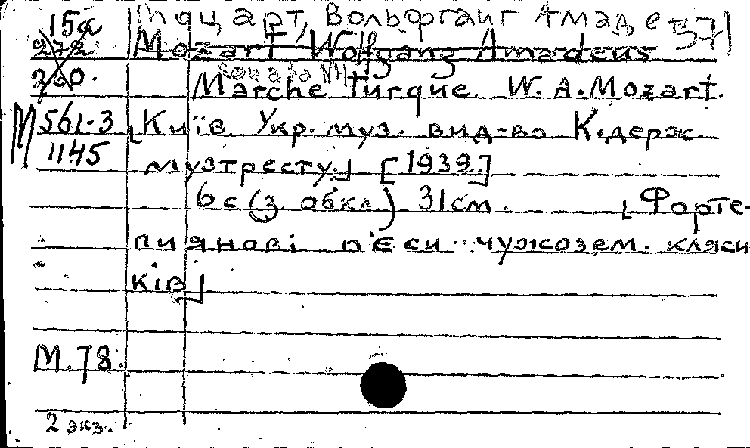 15а Моцарт, Вольфганг Амадей 37
272 Mozart Wolfgang Amadeus
260. Marche turque W. A. Mozart.
М 561-3 Київ Укр. муз. вид-во К. держ.
1145 музтресту] [1939.]
6 с (з обкл.) 31 см. [Форте-
пиянові п'єси чужозем. кляси
ків]
М. 78.
2 экз.